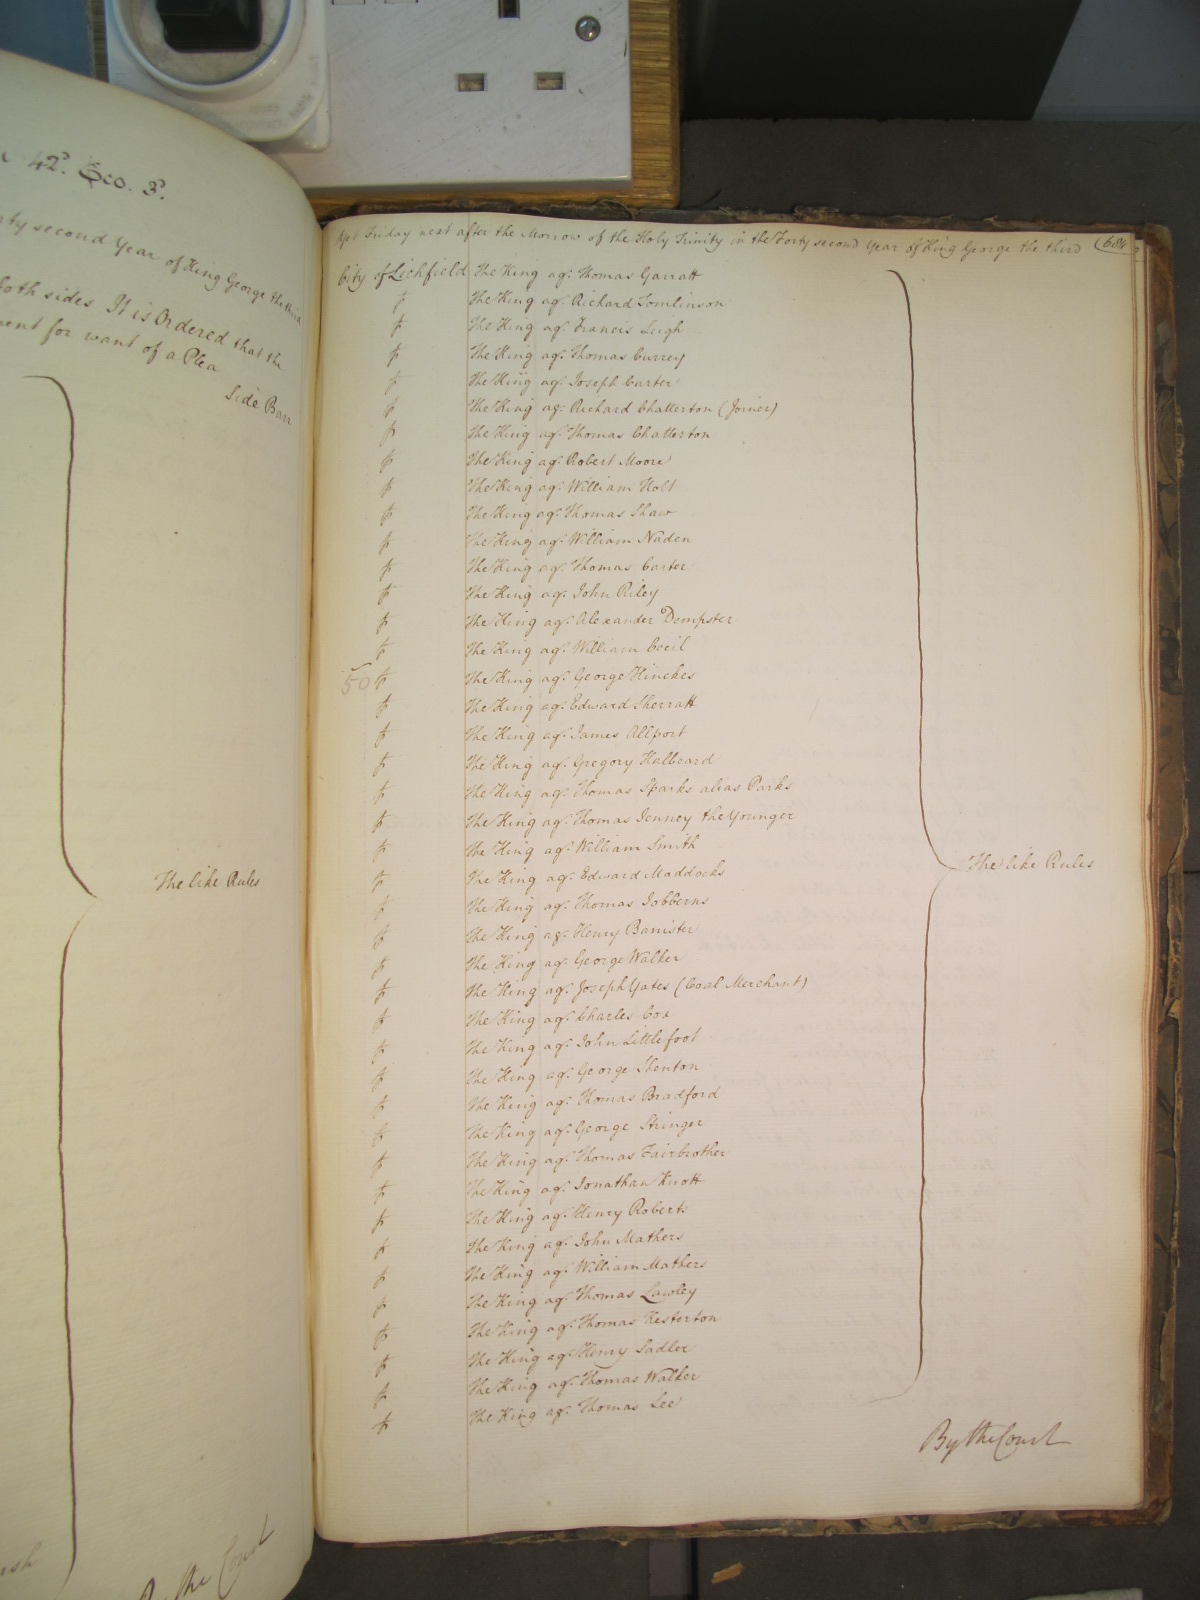 42d. Geo. 3d.
ty second Year of King George the third
both sides It is Ordered that the
ment for want of a Plea
Side Barr
The like Rules
By the Court
Yet Friday next after the Morrow of the Holy Trinity in the Forty second Year of King George the third
City of Lichfield The King agt. Thomas Garratt
The King agt. Richard Tomlinson
The King agt. Francis Leigh
The King agt. Thomas Currey
The King agt. Joseph Carter
The King agt. Richard Chatterton (Joiner)
The King agt. Thomas Chatterton
The King agt. Robert Moore
The King agt. William Holt
The King agt. Thomas Shaw
The King agt. William Naden
The King agt. Thomas Carter
The King agt. John Riley
The King agt. Alexander Dempster
The King agt. William Cecil
50 The King agt. George Hinckes
The King agt. Edward Sherratt
The King agt. James Allport
The King agt. Gregory Halbeard
The King agt. Thomas Sparks alias Parks
The King agt. Thomas Jenney the Younger
The King agt. William Smith
The King agt. Edward Maddocks
The like Rules
The King agt. Thomas Jobberns
The King agt. Henry Banister
The King agt. George Walker
The King agt. Joseph Yates (Coal Merchant)
The King agt. Charles Cox
The King agt. John Littlefoot
The King agt. George Shenton
The King agt. Thomas Bradford
The King agt. George Stringer
The King agt. Thomas Fairbrother
The King agt. Jonathan Knott
The King agt. Henry Roberts
The King agt. John Mathers
The King agt. William Mathers
The King agt. Thomas Lawley
The King agt. Thomas Kesterton
The King agt. Henry Sadler
The King agt. Thomas Walker
The King agt. Thomas Lee
By the Court